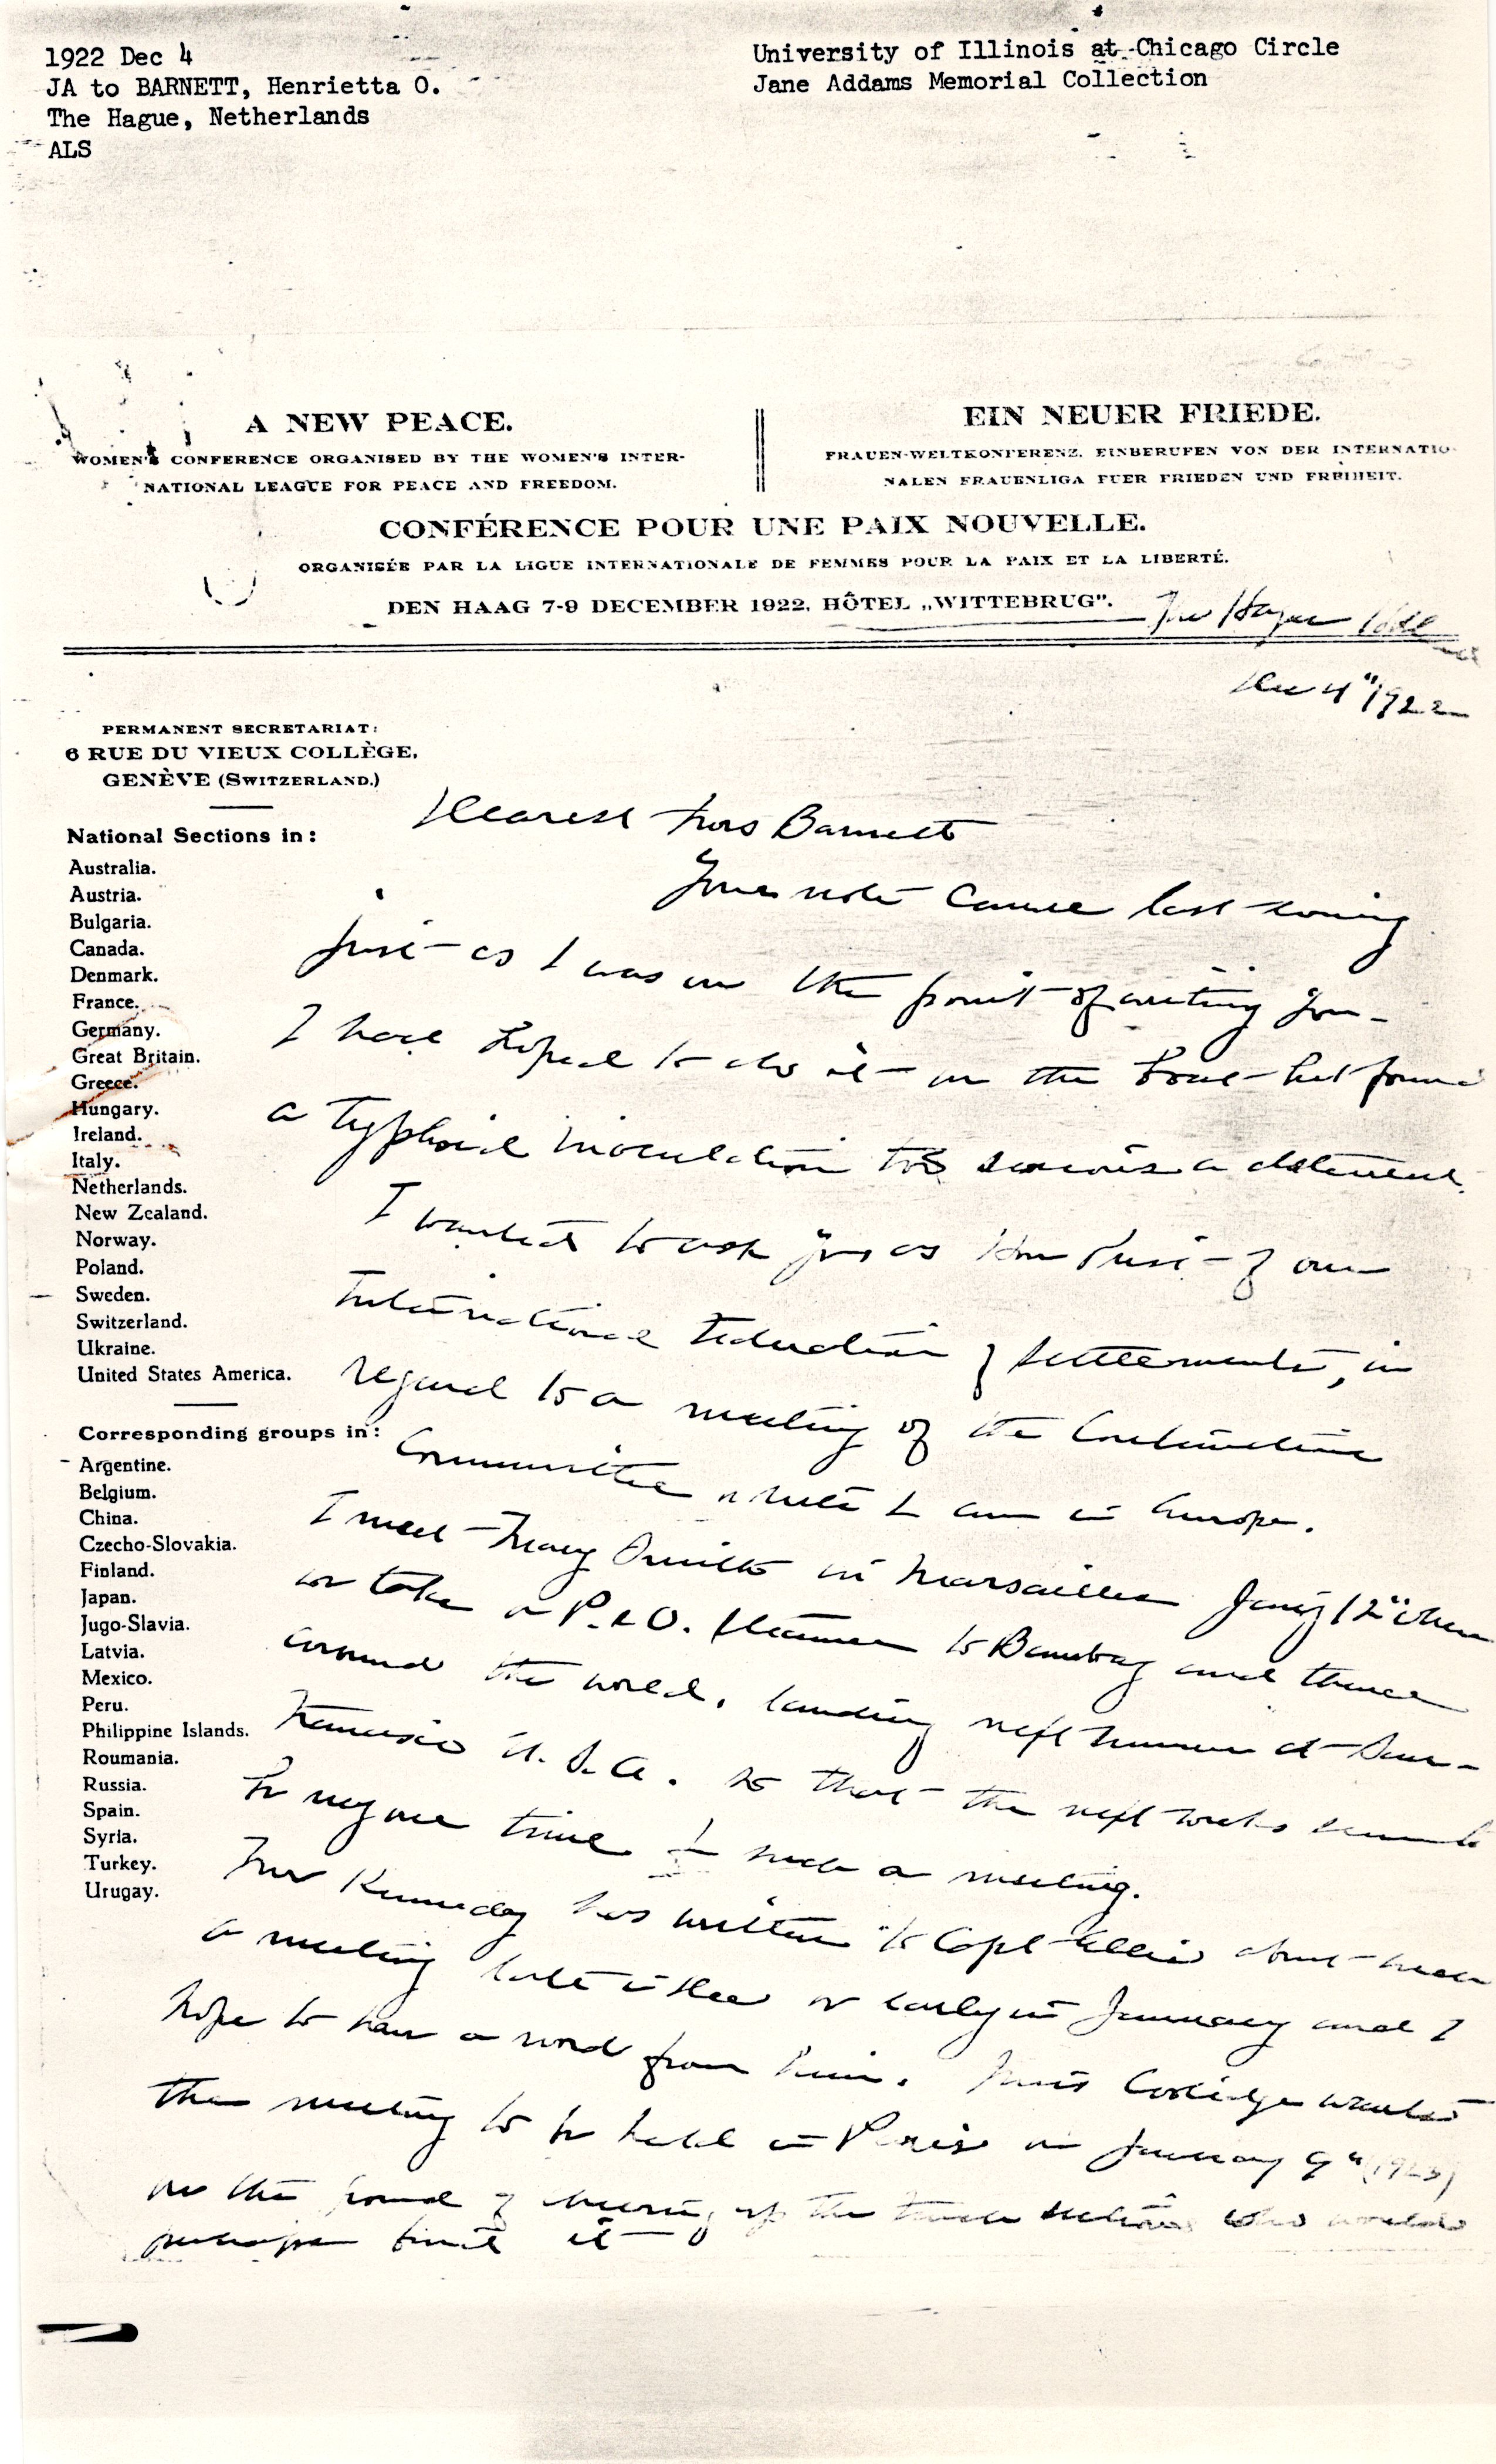 1922 Dec 4
JA to BARNETT, Henrietta O.
The Hague, Netherlands
ALS
University of Illinois at Chicago Circle
Jane Addams Memorial Collection
A NEW PEACE.
WOMEN'S CONFERENCE ORGANISED BY THE WOMEN'S INTER-
NATIONAL LEAGUE FOR PEACE AND FREEDOM.
EIN NEUER FRIEDE.
FRAUEN-WELTKONFERENZ, EINBERUFEN VON DER INTERNATIO-
NALEN FRAUENLIGA FUER FRIEDEN UND FREIHEIT.
CONFÉRENCE POUR UNE PAIX NOUVELLE.
ORGANISÉE PAR LA LIGUE INTERNATIONALE DE FEMMES POUR LA PAIX ET LA LIBERTÉ.
DEN HAAG 7-9 DECEMBER 1922, HÔTEL „WITTEBRUG".
The Hague
Dec 4" 1922
PERMANENT SECRETARIAT:
6 RUE DU VIEUX COLLÈGE,
GENÈVE (SWITZERLAND.)
National Sections in:
Australia.
Austria.
Bulgaria.
Canada.
Denmark.
France.
Germany.
Great Britain.
Greece.
Hungary.
Ireland.
Italy.
Netherlands.
New Zealand.
Norway.
Poland.
Sweden.
Switzerland.
Ukraine.
United States America.
Corresponding groups in:
Argentine.
Belgium.
China.
Czecho-Slovakia.
Finland.
Japan.
Jugo-Slavia.
Latvia.
Mexico.
Peru.
Philippine Islands.
Roumania.
Russia.
Spain.
Syria.
Turkey.
Urugay.
Dearest Mrs Barnett
Your note came last evening
just as I was on the point of writing you -
I had hoped to do it on the boat but found
a typhoid inoculation too serious a deterrent.
I wanted to ask you as Hon Pres - of our
International Federation of Settlements, in
regard to a meeting of the
Committee while I am in Europe.
I meet Mary Smith in Marsailles Jan'y 12" when
we take a P. & O. Steamer to Bombay and thence
around the world, landing next summer at San-
Francisco U.S.A. so that the next weeks seem to
be my one time for such a meeting.
Mr Kennedy has written to Capt Ellis about such
a meeting late in Dec or early in January and I
hope to have a word from him. Miss Coolidge wanted
the meeting to be held in Paris on January 9" (1923)
on the ground of the who would
perhaps find it